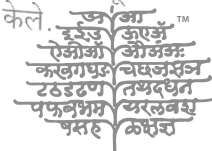 केले.
अ आ ™
इ ई उ ऊ ए ॲ
ऐ ओ ऑ औ अं अः
क ख ग घ ङ च छ ज झ ञ
ट ठ ड ढ ण त थ द ध न
प फ ब भ म य र ल व श
ष स ह ळ क्ष ज्ञ